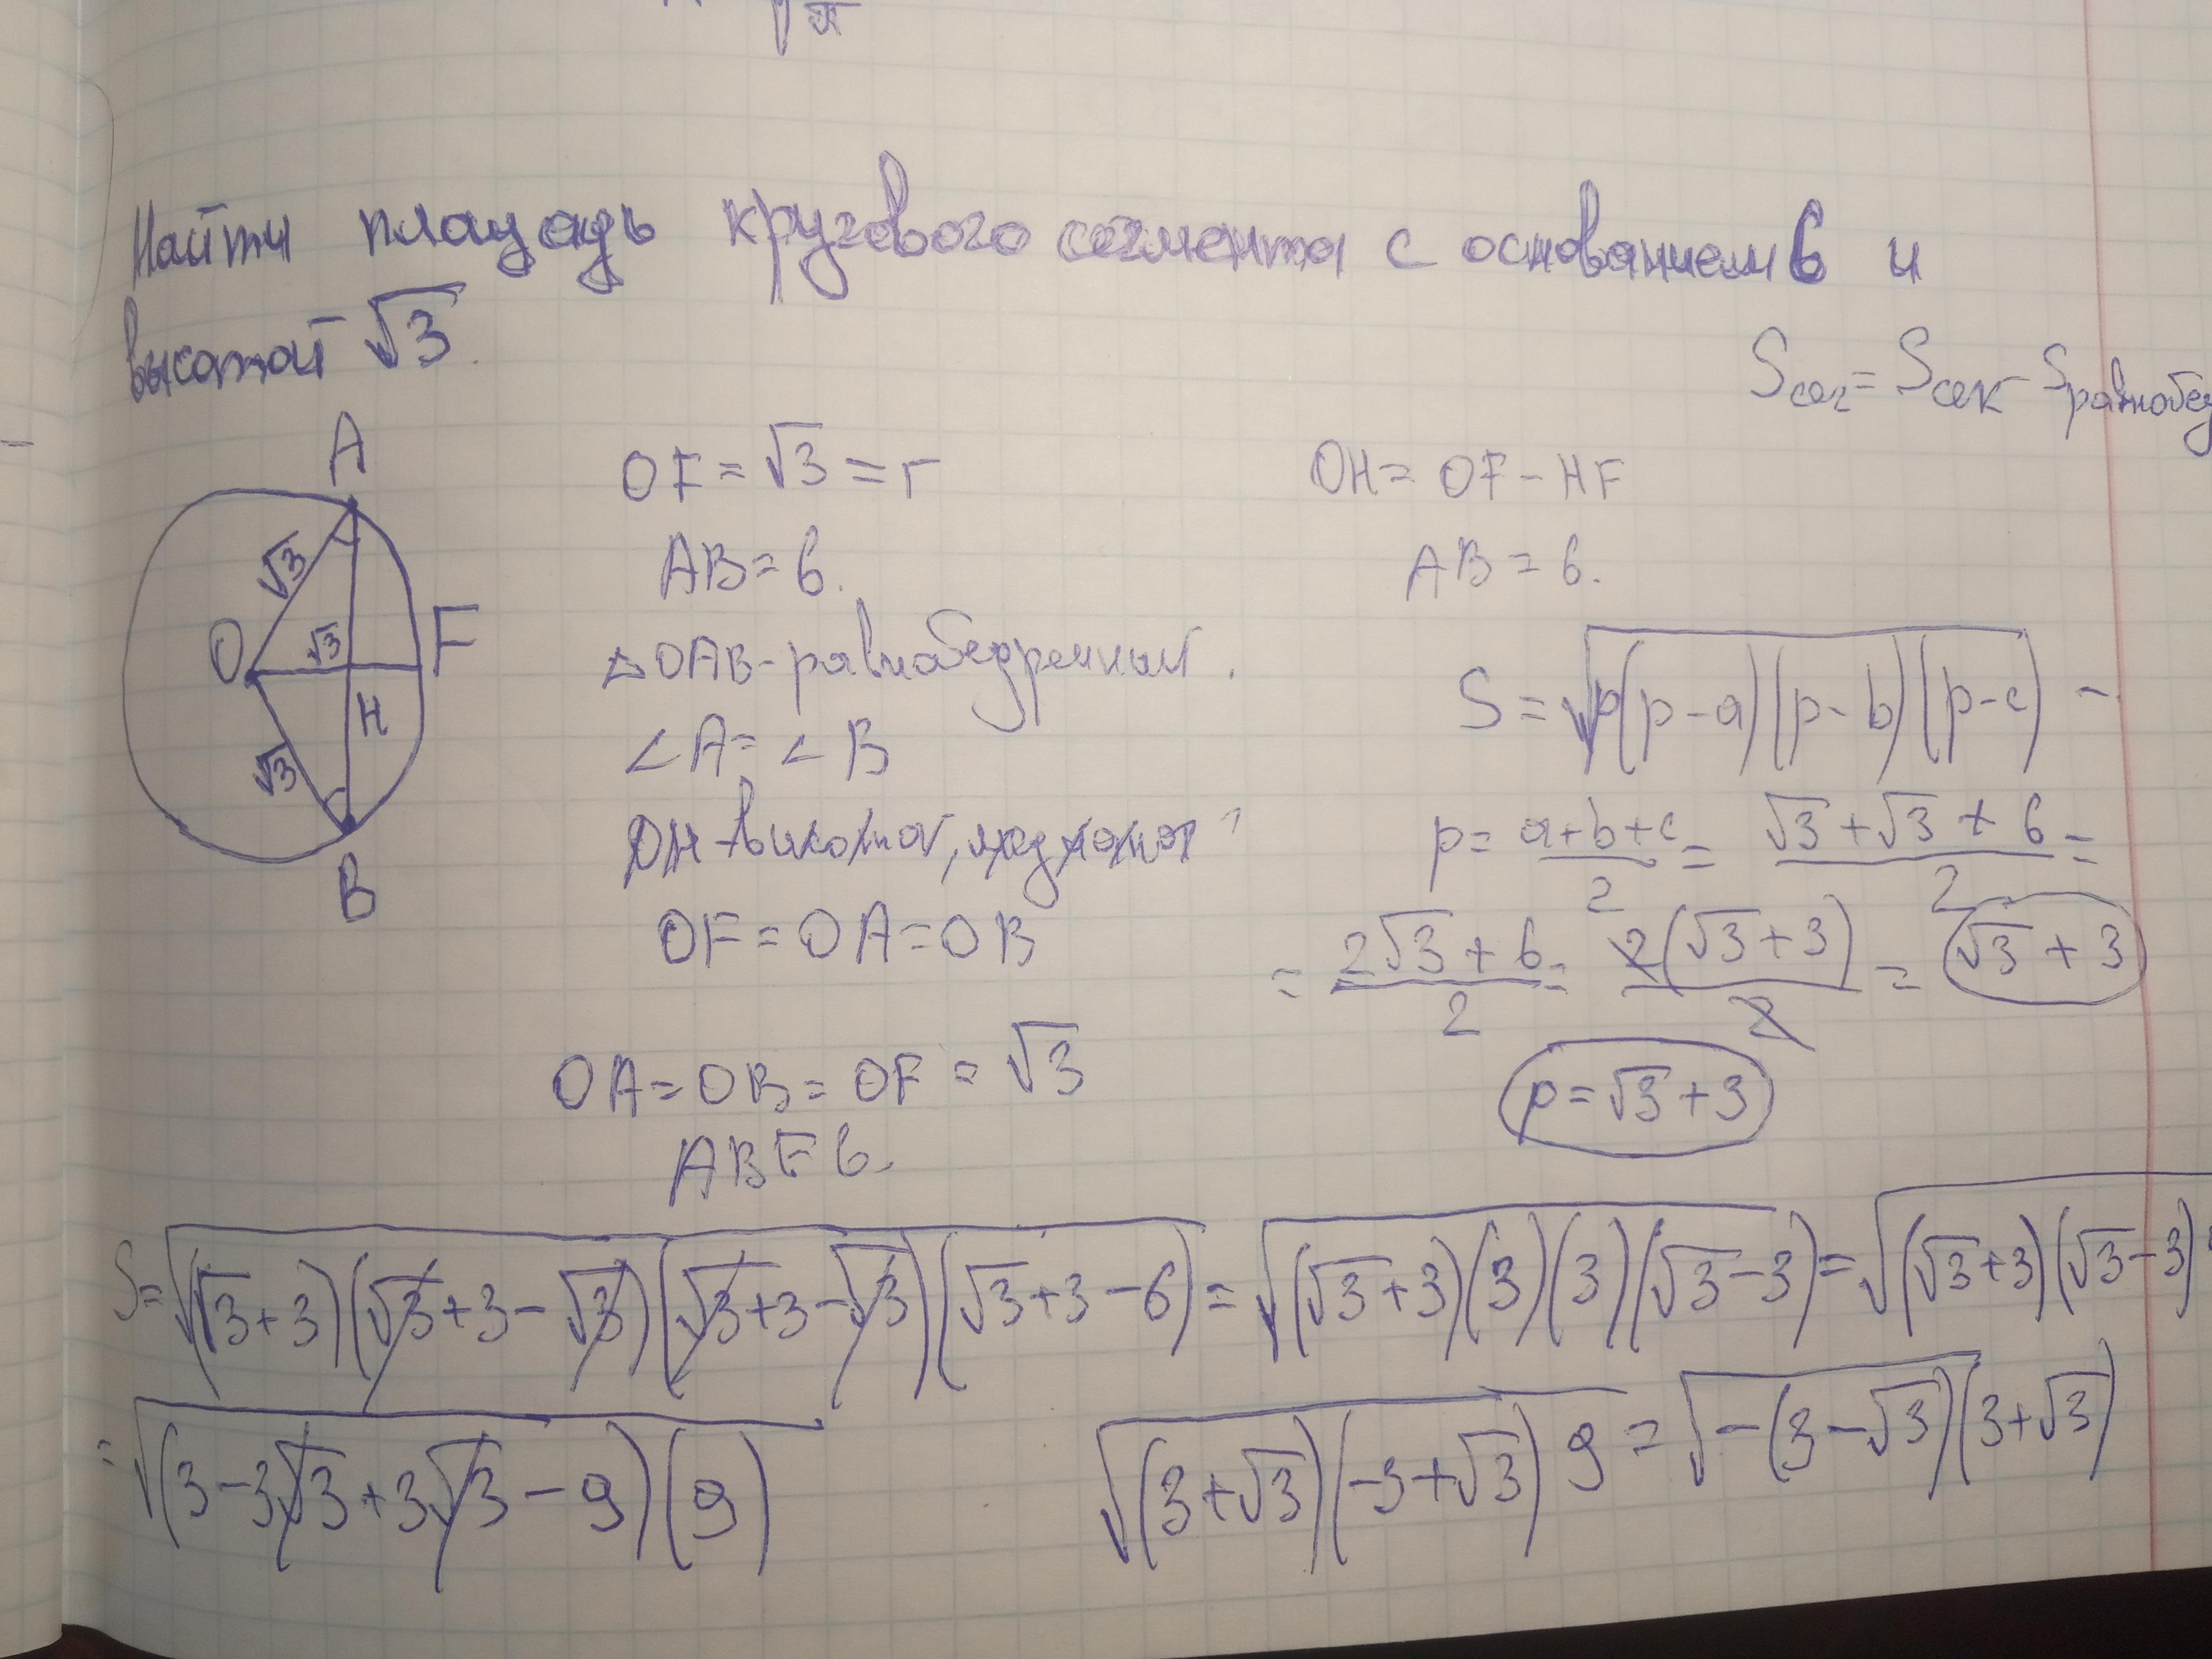 √π
Найти площадь кругового сегмента с основанием 6 и
высотой √3.
Sсег = Sсек - Sравнобед
A
O
F
H
B
√3
√3
√3
OF = √3 = r
AB = 6.
△OAB - равнобедренный.
∠A = ∠B
OH - высота,
OF = OA = OB
OA = OB = OF = √3
AB = 6.
OH = OF - HF
AB = 6.
S = √(p(p-a)(p-b)(p-c)) -
p = (a+b+c)/2 = (√3+√3+6)/2 =
= (2√3+6)/2 = 2(√3+3)/2 = √3+3
p = √3+3
S = √((√3+3)(√3+3-√3)(√3+3-√3)(√3+3-6)) = √((√3+3)(3)(3)(√3-3)) = √((√3+3)(√3-3)
= √((3-3√3+3√3-9)(9))
√((3+√3)(-3+√3)9) = √(-(3-√3)(3+√3))